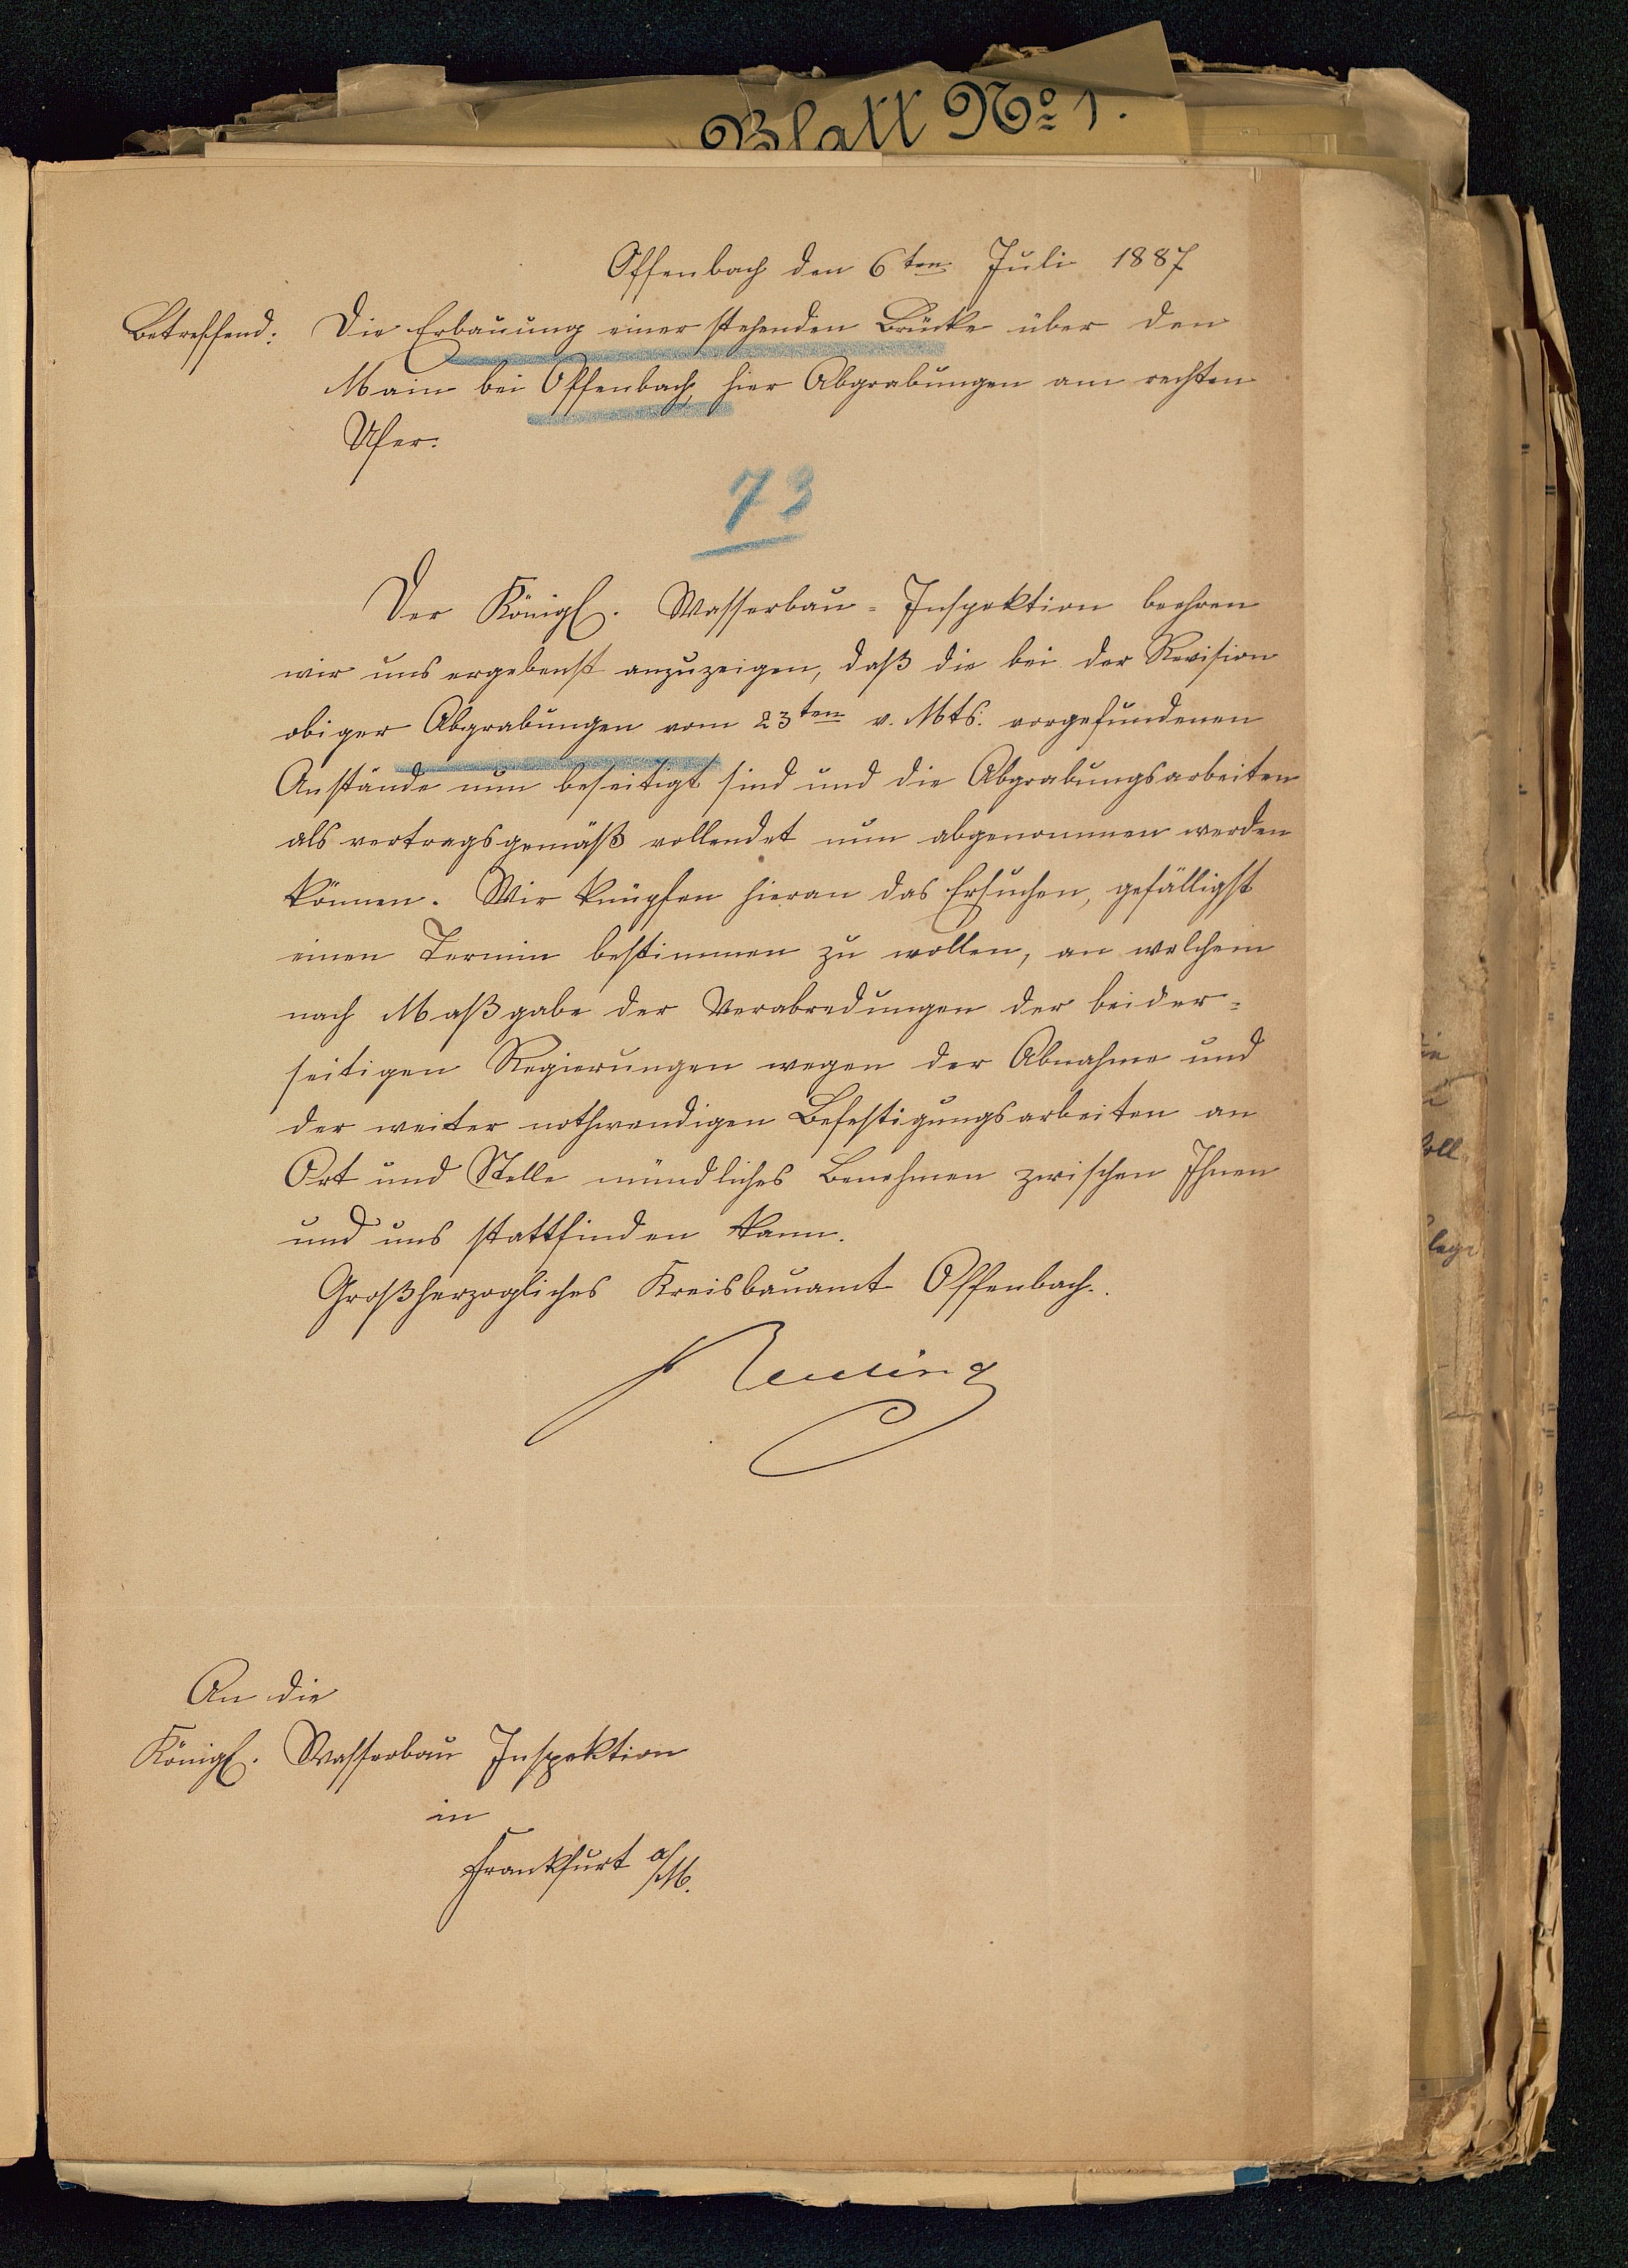 Blatt No 1.
Offenbach den 6ten Juli 1887
Betreffend: Die Erbauung einer stehenden Brücke über den
Main bei Offenbach, hier Abgrabungen am rechten
Ufer.
73
Der Königl. Wasserbau-Inspektion beehren
wir uns ergebenst anzuzeigen, daß die bei der Revision
obiger Abgrabungen vom 23ten v. Mts. vorgefundenen
Anstände nun beseitigt sind und die Abgrabungsarbeiten
als vertragsgemäß vollendet nun abgenommen werden
können. Wir knüpfen hieran das Ersuchen, gefälligst
einen Termin bestimmen zu wollen, an welchem
nach Maßgabe der Verabredungen der beider-
seitigen Regierungen wegen der Abnahme und
der weiter nothwendigen Befestigungsarbeiten an
Ort und Stelle mündliches Benehmen zwischen Ihnen
und uns stattfinden kann.
Großherzogliches Kreisbauamt Offenbach.
An die
Königl. Wasserbau Inspektion
in
Frankfurt a/M.